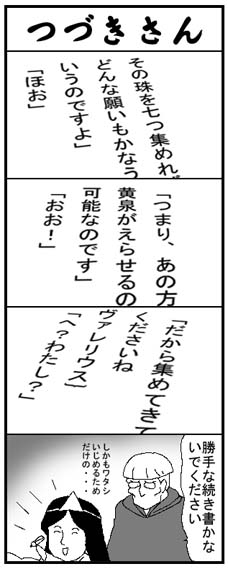 つづきさん
その珠を七つ集めれ
どんな願いもかなう
いうのですよ」
「ほお」
「つまり、あの方
黄泉がえらせるの
可能なのです」
「おお！」
「だから集めてきて
くださいね
ヴァレリウス」
「へ？わたし？」
勝手な続き書かな
いでください
しかもワタシ
いじめるため
だけの・・